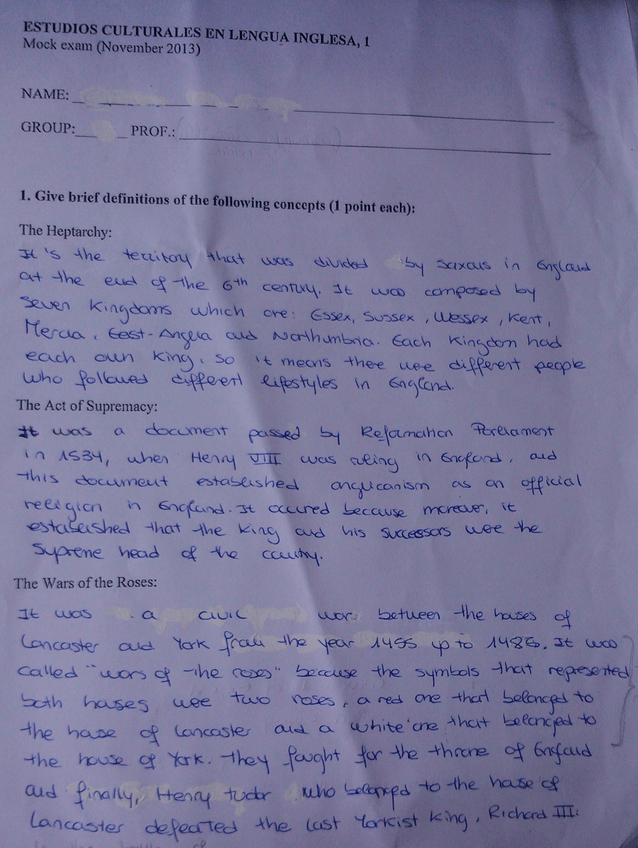 ESTUDIOS CULTURALES EN LENGUA INGLESA, 1
Mock exam (November 2013)
NAME:
GROUP: PROF.:
1. Give brief definitions of the following concepts (1 point each):
The Heptarchy:
It's the territory that was divided by saxons in England
at the end of the 6th century. It was composed by
seven Kingdoms which are: Essex, Sussex, Wessex, Kent,
Mercia, East-Anglia and Northumbria. Each Kingdom had
each own King, so it means there were different people
who followed different lifestyles in England.
The Act of Supremacy:
It was a document passed by Reformation Parliament
in 1534, when Henry VIII was ruling in England, and
this document established anglicanism as an official
religion in England. It occured because moreover, it
established that the King and his successors were the
Supreme head of the country.
The Wars of the Roses:
It was a civil war between the houses of
Lancaster and York from the year 1455 up to 1485. It was
called "wars of the roses" because the symbols that represented
both houses were two roses, a red one that belonged to
the house of Lancaster and a white one that belonged to
the house of York. They fought for the throne of England
and finally, Henry tudor who belonged to the house of
Lancaster defeated the last Yorkist King, Richard III.